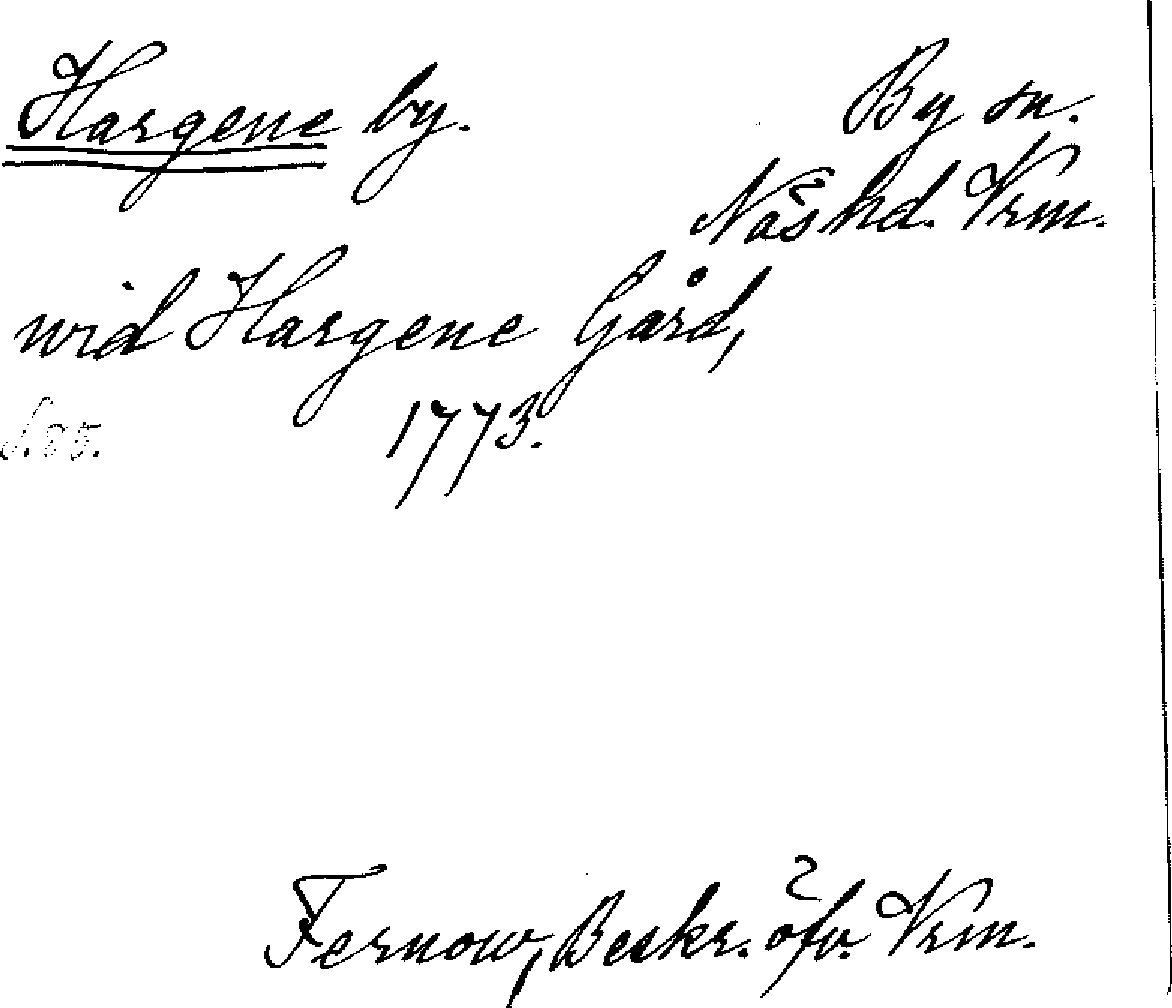 Hargene by. By sn.
Näs hd. Vrm.
wid Hargene Gård,
S. 85. 1773.
Fernow, Beskr. öfv. Vrm.